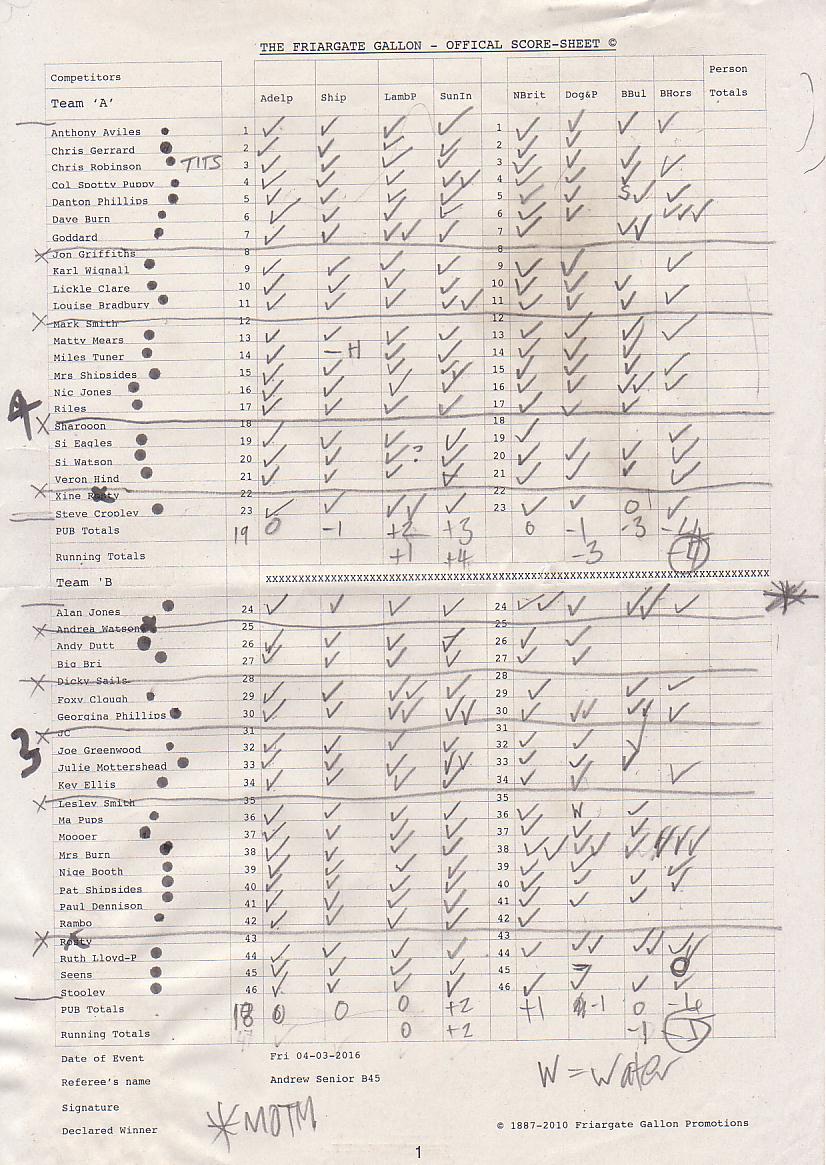 THE FRIARGATE GALLON - OFFICAL SCORE-SHEET ©
Competitors Person
Team 'A' Adelp Ship LambP SunIn NBrit Dog&P BBul BHors Totals
Anthony Aviles 1 ✓ ✓ ✓ ✓ 1 ✓ ✓ ✓ ✓
Chris Gerrard 2 ✓ ✓ ✓ ✓ 2 ✓ ✓
Chris Robinson TITS 3 ✓ ✓ ✓ ✓ 3 ✓ ✓ ✓ ✓
Col Spotty Puppy 4 ✓ ✓ ✓ ✓✓ 4 ✓ ✓ ✓
Danton Phillips 5 ✓ ✓ ✓ ✓ 5 ✓ ✓ S✓ ✓
Dave Burn 6 ✓ ✓ ✓ ✓ 6 ✓ ✓ ✓✓✓
Goddard 7 ✓ ✓ ✓✓ ✓ 7 ✓ ✓✓
Jon Griffiths 8 8
Karl Wignall 9 ✓ ✓ ✓ ✓ 9 ✓ ✓ ✓
Lickle Clare 10 ✓ ✓ ✓ ✓ 10 ✓ ✓ ✓
Louise Bradbury 11 ✓ ✓ ✓ ✓✓ 11 ✓ ✓ ✓ ✓
Mark Smith 12 12
Matty Mears 13 ✓ ✓ ✓ ✓ 13 ✓ ✓ ✓ ✓
Miles Tuner 14 ✓ -H ✓ ✓ 14 ✓ ✓ ✓
Mrs Shipsides 15 ✓ ✓ ✓ ✓✓ 15 ✓ ✓ ✓ ✓
Nic Jones 16 ✓ ✓ ✓ ✓ 16 ✓ ✓ ✓✓ ✓
4 Riles 17 ✓ ✓ ✓ ✓ 17 ✓ ✓ ✓
Sharooon 18 18
Si Eagles 19 ✓ ✓ ✓ ✓ 19 ✓ ✓
Si Watson 20 ✓ ✓ ✓? ✓ 20 ✓ ✓ ✓ ✓
Veron Hind 21 ✓ ✓ ✓ ✓ 21 ✓ ✓ ✓ ✓
Xine 22 22
Steve Cropley 23 ✓ ✓ ✓✓ ✓ 23 ✓ ✓ 0 ✓
PUB Totals 19 0 -1 +2 +3 0 -1 -3
Running Totals +1 +4 -3
Team 'B xxxxxxxxxxxxxxxxxxxxxxxxxxxxxxxxxxxxxxxxxxxxxxxxxxxxxxxxxxxxxxxxxxxxxxxx
Alan Jones 24 ✓ ✓ ✓ ✓ 24 ✓✓ ✓ ✓✓ ✓
Andrea Watson 25 25
Andy Dutt 26 ✓ ✓ ✓ ✓ 26 ✓ ✓
Big Bri 27 ✓ ✓ ✓ ✓ 27 ✓ ✓
Dicky Sails 28 28
Foxy Clough 29 ✓ ✓ ✓✓ ✓ 29 ✓ ✓ ✓
Georgina Phillips 30 ✓ ✓ ✓✓ ✓✓ 30 ✓ ✓✓ ✓✓ ✓
JC 31 31
3 Joe Greenwood 32 ✓ ✓ ✓ ✓ 32 ✓ ✓ ✓
Julie Mottershead 33 ✓ ✓ ✓ ✓✓ 33 ✓ ✓ ✓
Kev Ellis 34 ✓ ✓ ✓ ✓ 34 ✓ ✓ ✓
Lesley Smith 35 35
Ma Pups 36 ✓ ✓ ✓ ✓ 36 ✓ W ✓
Moooer 37 ✓ ✓ ✓ ✓ 37 ✓ ✓ ✓
Mrs Burn 38 ✓ ✓ ✓ ✓ 38 ✓✓ ✓✓ ✓ ✓✓✓
Nige Booth 39 ✓ ✓ ✓ ✓ 39 ✓ ✓ ✓ ✓
Pat Shipsides 40 ✓ ✓ ✓ ✓ 40 ✓ ✓ ✓ ✓
Paul Dennison 41 ✓ ✓ ✓ ✓ 41 ✓ ✓ ✓
Rambo 42 ✓ ✓ ✓ ✓ 42 ✓
Rosty 43 43
Ruth Lloyd-P 44 ✓ ✓ ✓ ✓ 44 ✓ ✓✓ ✓✓ ✓✓
Seens 45 ✓ ✓ ✓ ✓ 45 0
Stooley 46 ✓ ✓ ✓ ✓ 46 ✓ ✓ ✓ ✓
PUB Totals 18 0 0 0 +2 +1 -1 0
Running Totals 0 +2 -1
Date of Event Fri 04-03-2016
Referee's name Andrew Senior B45 W = Water
Signature
Declared Winner *MOTM © 1887-2010 Friargate Gallon Promotions
1